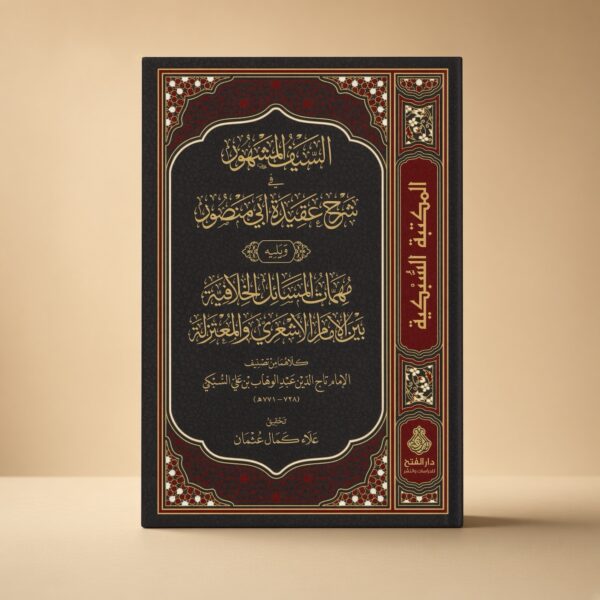 السَّيْفُ المَشْهُورُ
في
شَرْحِ عَقِيدَةِ أَبي مَنْصُور
وَيَلِيه
مُهِمَّاتُ المَسَائِلِ الخِلَافِيَّةِ
بَيْنَ الإِمَامِ الأَشْعَرِيِّ وَالمُعْتَزِلَةِ
كلاهما من تصنيف
الإمام تاج الدين عبد الوهاب بن علي السُّبْكي
(٧٢٨ – ٧٧١هـ)
تحقيق
علاء كمال عثمان
المكتبة السُّبْكية
دار الفتح
للدراسات والنشر